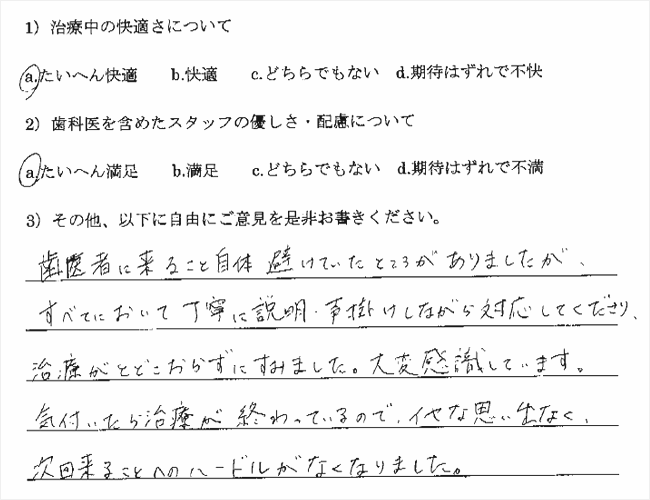 1）治療中の快適さについて
a.たいへん快適　b.快適　c.どちらでもない　d.期待はずれで不快
2）歯科医を含めたスタッフの優しさ・配慮について
a.たいへん満足　b.満足　c.どちらでもない　d.期待はずれで不満
3）その他、以下に自由にご意見を是非お書きください。
歯医者に来ること自体 避けていたところがありましたが、
すべてにおいて丁寧に説明・声掛けしながら対応してくださり、
治療がとどこおらずにすみました。大変感識しています。
気付いたら治療が終わっているので、イヤな思い出なく、
次回来ることへのハードルがなくなりました。